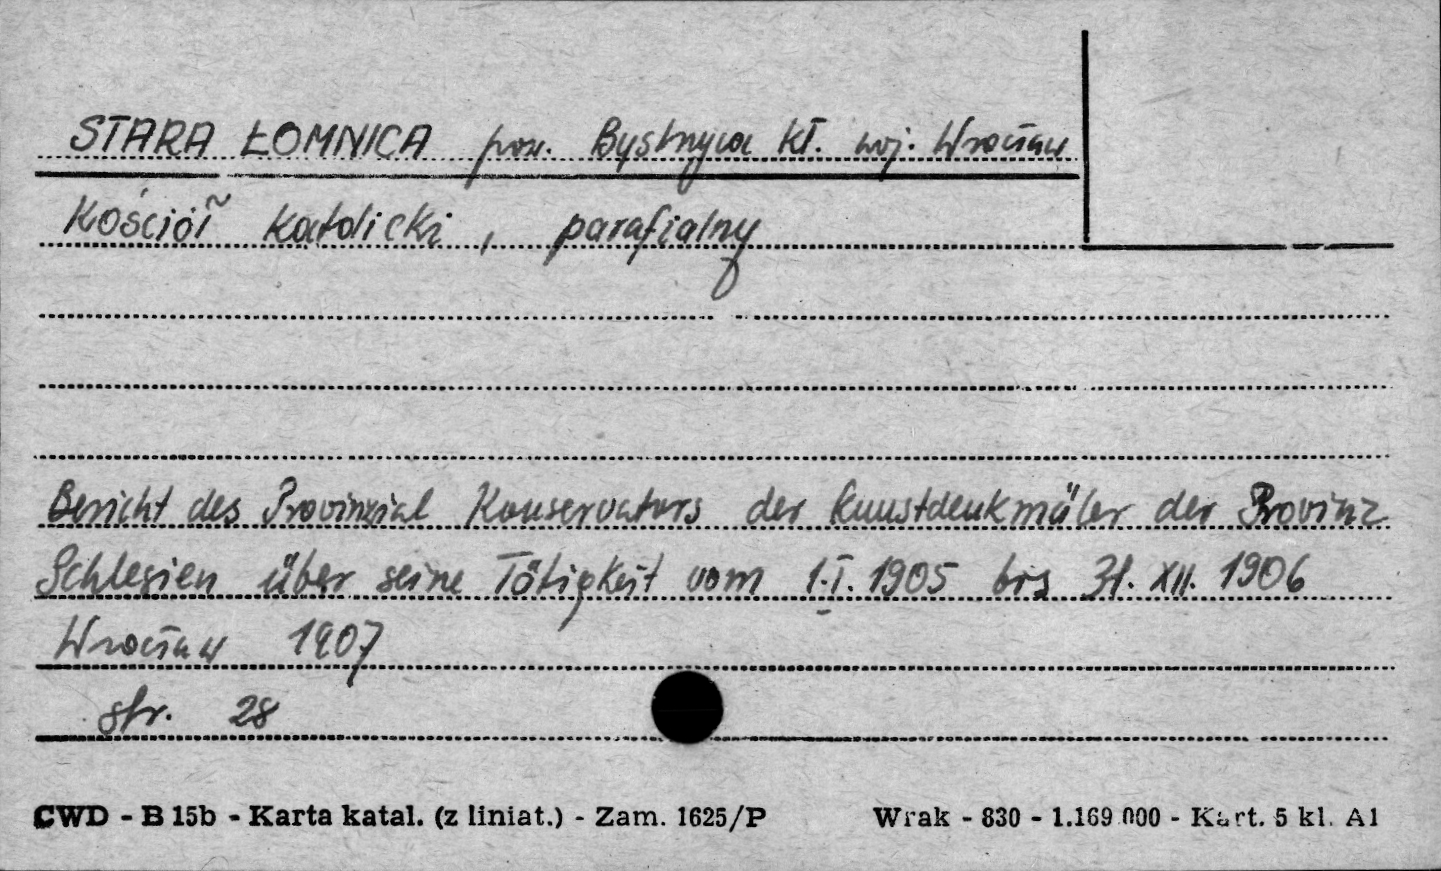 STARA ŁOMNICA pow. Bystrzyca Kł. woj. Wrocław
Kościół katolicki, parafialny
Bericht des Provinzial Konservators der Kunstdenkmäler der Provinz
Schlesien über seine Tätigkeit vom 1.I.1905 bis 31.XII.1906
Wrocław 1907
str. 28
CWD - B 15b - Karta katal. (z liniat.) - Zam. 1625/P Wrak - 830 - 1.169 000 - Kart. 5 kl. A1